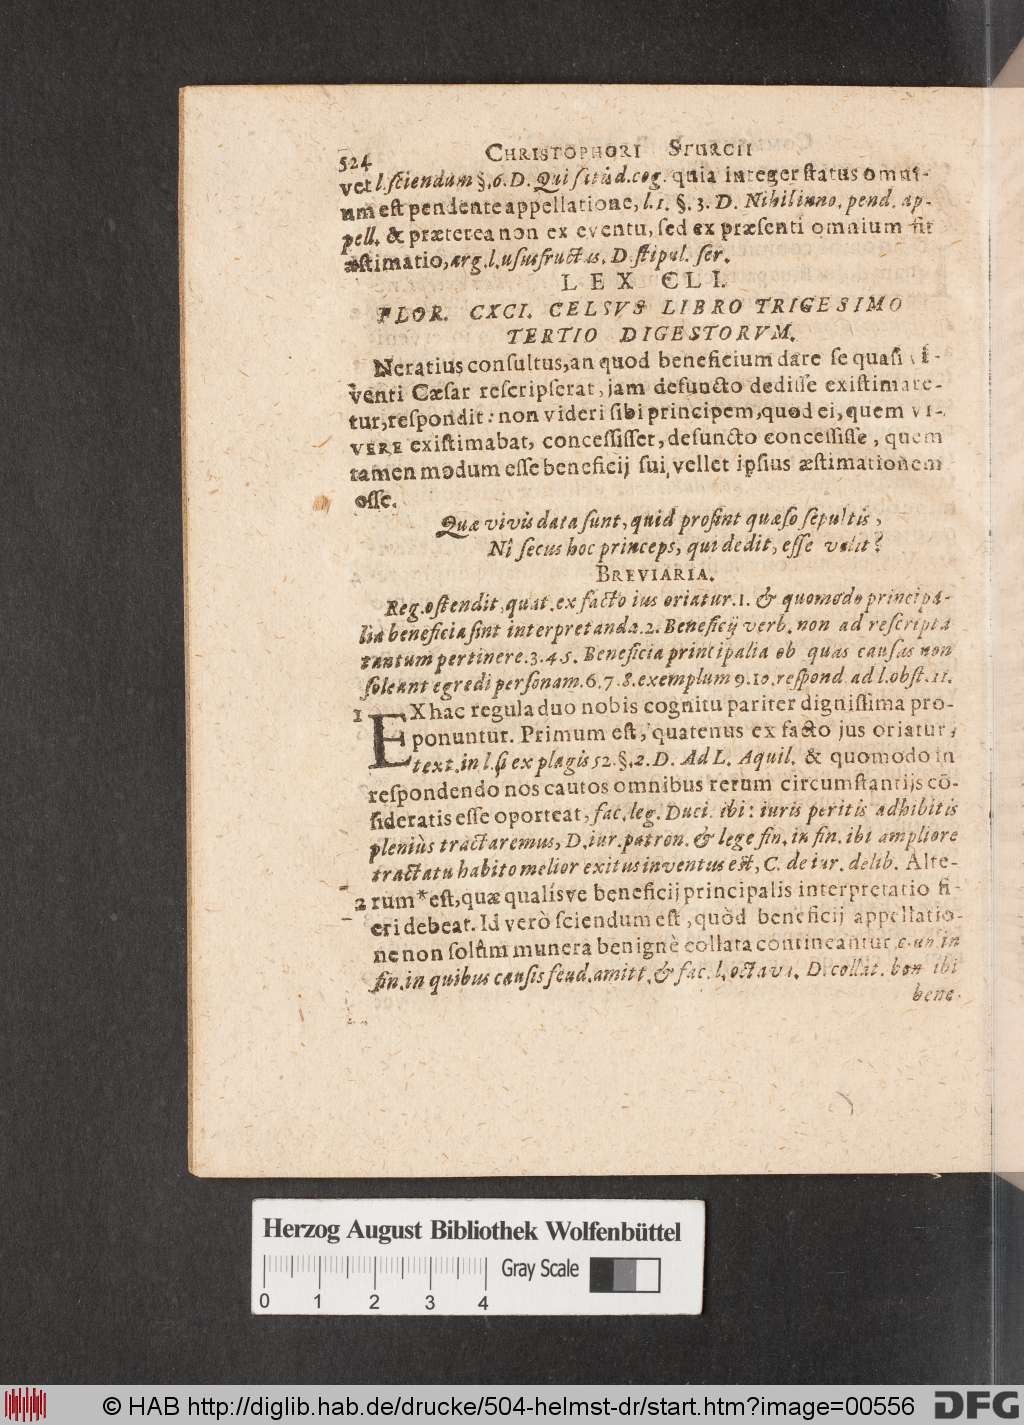 524 CHRISTOPHORI STURCII
vet l. sciendum §. 6. D. Qui satisd. cog. quia integer status omni-
um est pendente appellatione, l. 1. §. 3. D. Nihil inno. pend. ap-
pell. & præterea non ex eventu, sed ex præsenti omnium fit
æstimatio, arg. l. ususfructus. D. stipul. ser.
LEX CLI.
FLOR. CXCI. CELSVS LIBRO TRIGESIMO
TERTIO DIGESTORVM.
Neratius consultus, an quod beneficium dare se quasi vi-
venti Cæsar rescripserat, jam defuncto dedisse existimare-
tur, respondit: non videri sibi principem, quod ei, quem VI-
VERE existimabat, concessisset, defuncto concessisse, quem
tamen modum esse beneficij sui vellet ipsius æstimationem
esse.
Quæ vivis data sunt, quid prosint quæso sepultis,
Nî secus hoc princeps, qui dedit, esse velit?
BREVIARIA.
Reg. ostendit, quat. ex facto ius oriatur. 1. & quomodo principa-
lia beneficia sint interpretanda. 2. Beneficij verb. non ad rescripta
tantum pertinere. 3. 4. 5. Beneficia principalia ob quas causas non
soleant egredi personam. 6. 7. 8. exemplum 9. 10. respond. ad l. obst. 11.
1 EX hac regula duo nobis cognitu pariter dignissima pro-
ponuntur. Primum est, quatenus ex facto jus oriatur,
text. in l. si ex plagis 52. §. 2. D. Ad L. Aquil. & quomodo in
respondendo nos cautos omnibus rerum circumstantijs cõ-
sideratis esse oporteat, fac. leg. Duci. ibi: iuris peritis adhibitis
pleniùs tractaremus, D. iur. patron. & lege fin. in fin. ibi ampliore
tractatu habito melior exitus inventus est, C. de iur. delib. Alte-
2 rum* est, quæ qualísve beneficij principalis interpretatio fi-
eri debeat. Id verò sciendum est, quòd beneficij appellatio-
ne non solùm munera benignè collata contineantur c. un. in
fin. in quibus causis feud. amitt. & fac. l. octavi. D. collat. bon ibi
bene-
Herzog August Bibliothek Wolfenbüttel
0 1 2 3 4 Gray Scale
© HAB http://diglib.hab.de/drucke/504-helmst-dr/start.htm?image=00556 DFG